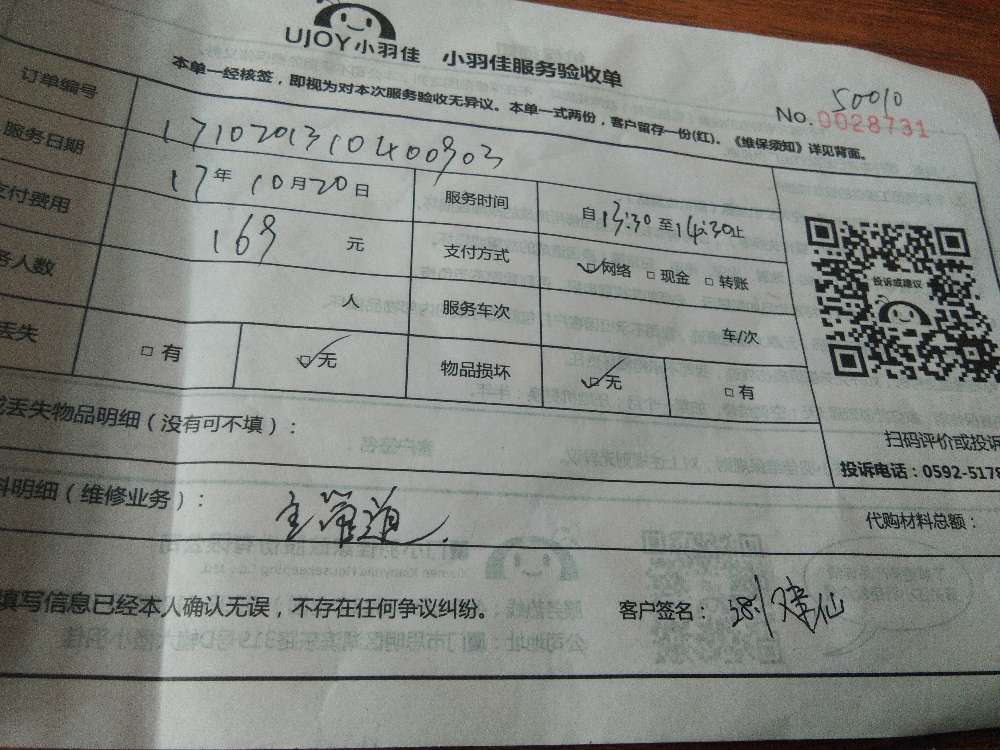 UJOY小羽佳 小羽佳服务验收单
50010
No.0028731
本单一经核签，即视为对本次服务验收无异议。本单一式两份，客户留存一份(红)。《维保须知》详见背面。
订单编号 1710201310400903
服务日期 17年 10月20日 服务时间 自13:30至14:30止
支付费用 169 元 支付方式 网络 □现金 □转账
务人数 人 服务车次 车/次
丢失 □有 无 物品损坏 无 □有
投诉或建议
扫码评价或投诉
投诉电话：0592-5178
丢失物品明细（没有可不填）：
料明细（维修业务）： 主管道
代购材料总额：
填写信息已经本人确认无误，不存在任何争议纠纷。 客户签名：